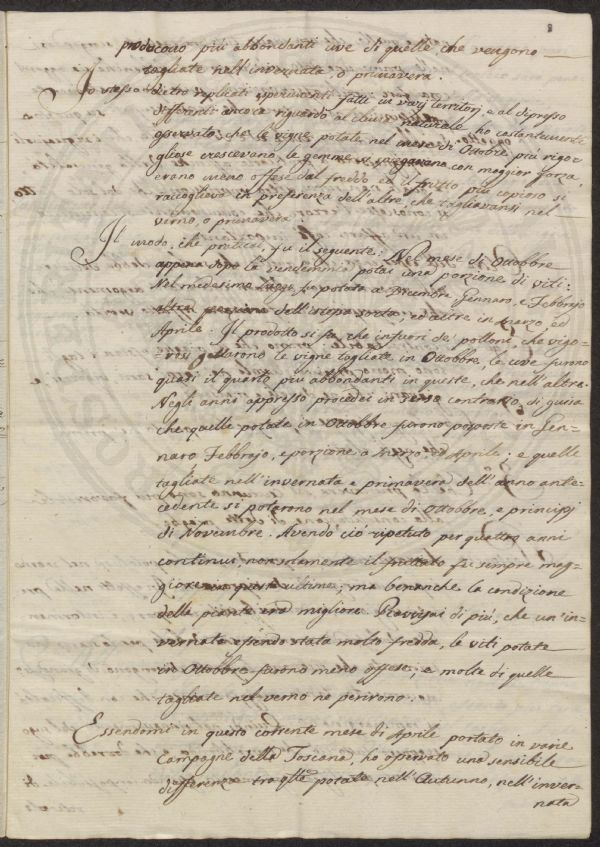 8
producono più abbondanti uve di quelle, che vengono
tagliate nell'invernata, o primavera.
Io stesso dietro replicati sperimenti fatti in varj territorj, e al dipresso
differenti ancora riguardo al clima naturale ho costantemente
osservato, che le vigne potate nel mese di Ottobre più rigo-
gliose crescevano, le gemme si spiegavano con maggior forza,
erano meno offese dal freddo ed il frutto più copioso si
raccoglieva in preferenza dell'altre, che tagliavansi nel
verno, o primavera.
Il modo, che praticai, fu il seguente: Nel mese di Ottobbre
appena dopo la vendemmia potai una porzione di viti:
Nel medesimo luogo potata a Decembre Gennaro, e Febbrajo
altra porzione dell'istessa sorta; ed altre in Marzo, ed
Aprile. Il prodotto si fu, che infuori de' polloni, che vigo-
rosi gettarono le vigne tagliate in Ottobbre, le uve furono
quasi il quarto più abbondanti in queste, che nell'altre.
Negli anni appresso procedei in senso contrario, di guisa
che quelle potate in Ottobbre furono posposte in Gen-
naro Febbrajo, e porzione a Marzo ed Aprile; e quelle
tagliate nell'invernata e primavera dell'anno ante-
cedente si potarono nel mese di Ottobbre, e principj
di Novembre. Avendo ciò ripetuto per quattro anni
continui non solamente il fruttato fu sempre mag-
giore in queste ultime; ma benanche la condizione
delle piante era migliore. Ravvisai di più, che un'in-
vernata essendo stata molto fredda, le viti potate
in Ottobbre furono meno offese; e molte di quelle
tagliate nel verno ne perirono.
Essendomi in questo corrente mese di Aprile portato in varie
Campagne della Toscana, ho osservato una sensibile
differenza tra q.lle potate nell'Autunno, nell'inver-
nata